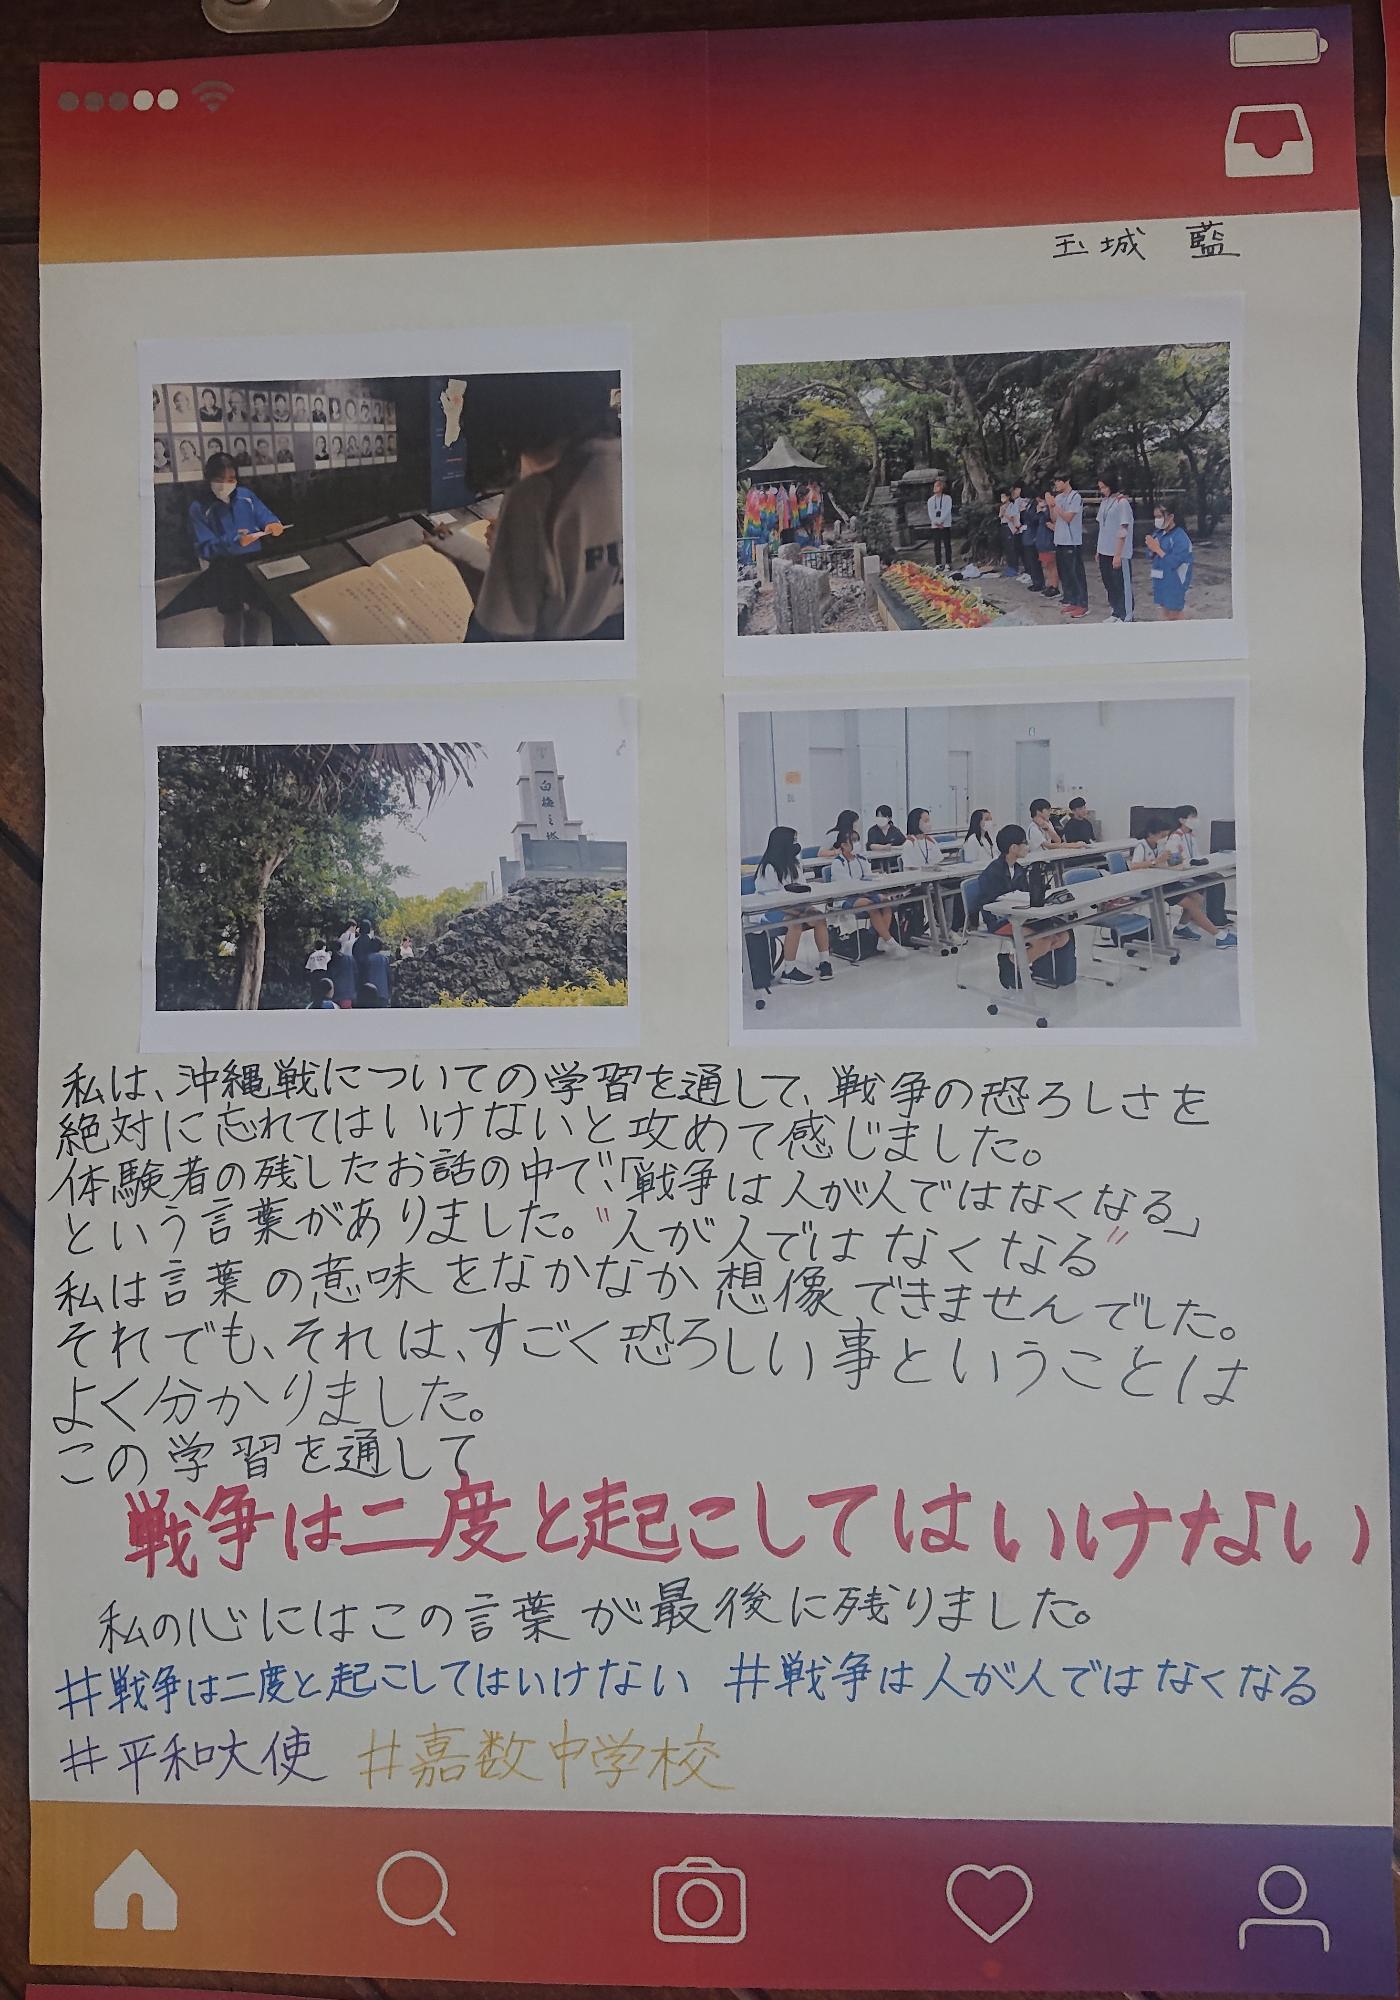 玉城 藍
白梅之塔
私は、沖縄戦についての学習を通して、戦争の恐ろしさを
絶対に忘れてはいけないと攻めて感じました。
体験者の残したお話の中で、「戦争は人が人ではなくなる」
という言葉がありました。"人が人ではなくなる"
私は言葉の意味をなかなか想像できませんでした。
それでも、それは、すごく恐ろしい事ということは
よく分かりました。
この学習を通して
戦争は二度と起こしてはいけない
私の心にはこの言葉が最後に残りました。
#戦争は二度と起こしてはいけない #戦争は人が人ではなくなる
#平和大使 #嘉数中学校